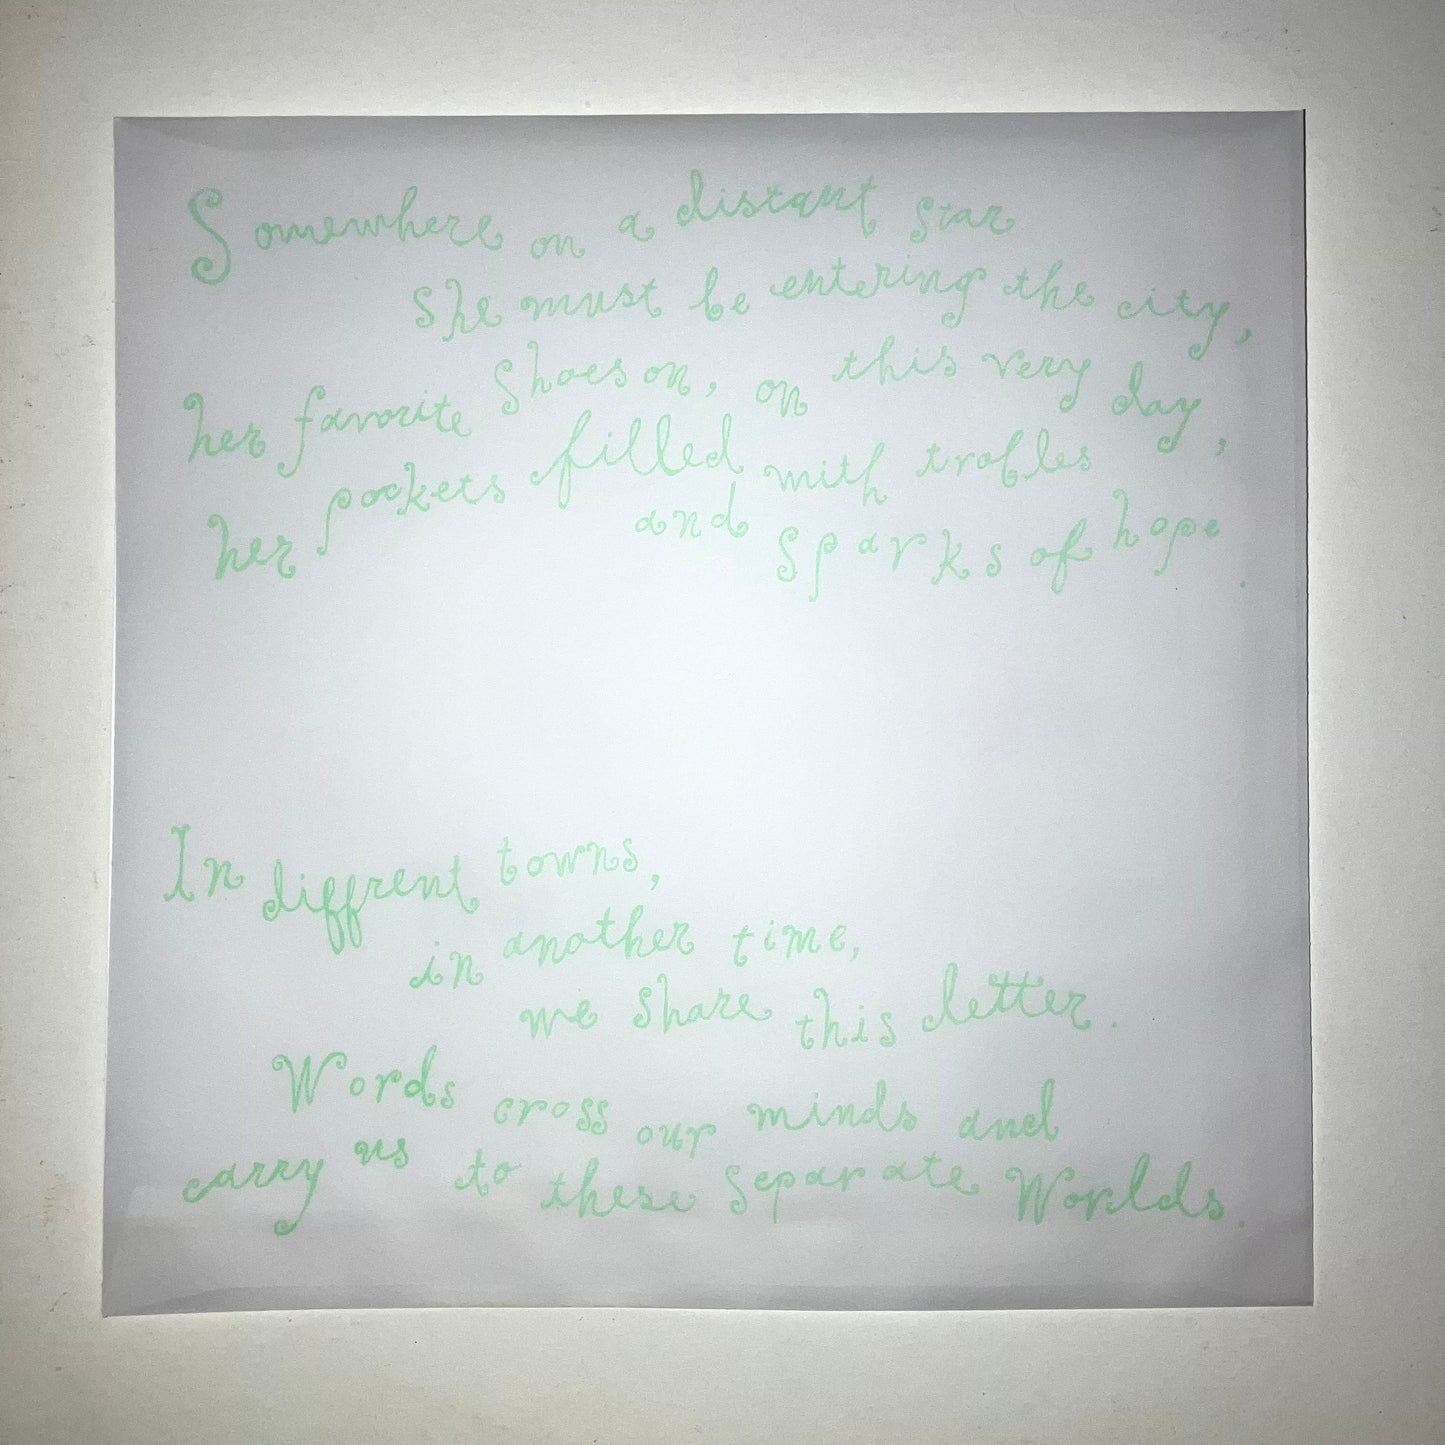 Somewhere on a distant star
she must be entering the city,
her favorite shoes on, on this very day,
her pockets filled with trobles
and sparks of hope.
In diffrent towns,
in another time,
we share this letter.
Words cross our minds and
carry us to these separate Worlds.